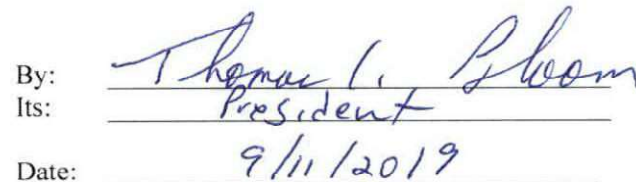 By: Thomas I. Bloom
Its: President
Date: 9/11/2019